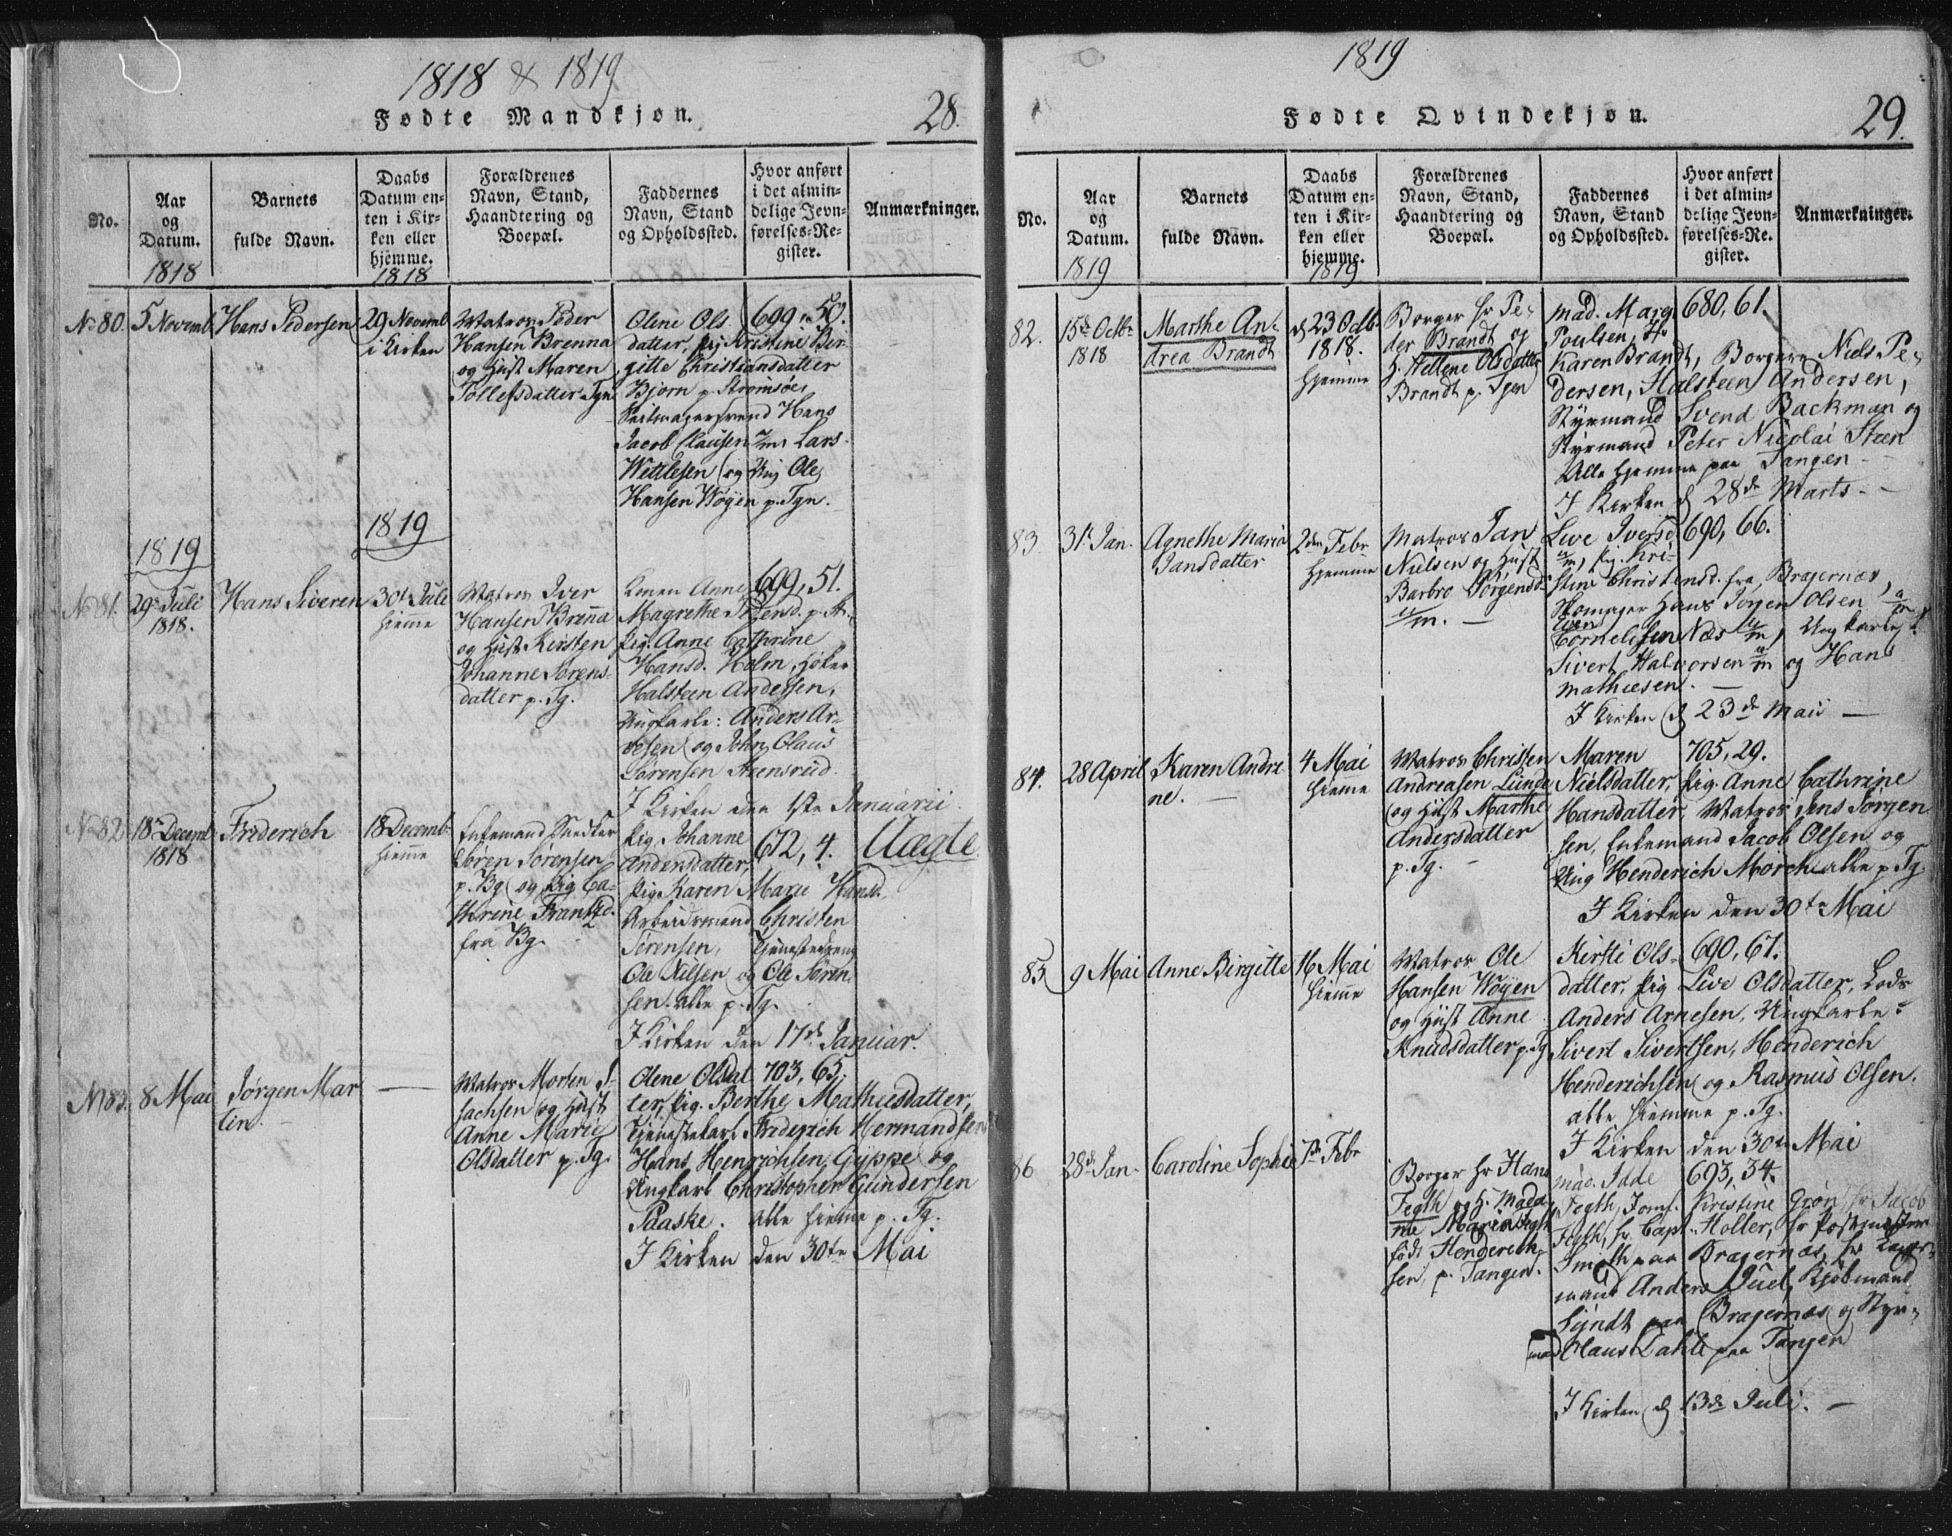 1818 & 1819
Fødte Mandkjøn.
28.
No.
Aar
og
Datum.
1818
Barnets
fulde Navn.
Daabs
Datum en-
ten i Kir-
ken eller
hjemme.
1818
Forældrenes
Navn, Stand,
Haandtering og
Boepæl.
Faddernes
Navn, Stand
og Opholdssted.
Hvor anført
i det almin-
delige Jevn-
førelses-Re-
gister.
Anmærkninger.
No 80.
5 Novemb
Hans Pedersen
29 Novemb
i Kirken
Matros Peder
Hansen Brenna
og Hust Maren
Tollefsdatter Tgn
Olene Ols
datter, pig Kristine Bir-
gitte Christiansdatter
Bjorn p Strømsøe,
Seilmagersvend Hans
Jacob Clausen Lars
Wettlesen og Ung Ole
Hansen Woyen p. Tgn.
699, 50.
1819
1819
No 81.
29 Juli
1818.
Hans Siveren
30t Juli
hieme
Matros Iver
Hansen Brena
og Hust Kirsten
Johanne Sørens-
datter p. Tg.
Konen Anne
Magrethe
pig. Anne Cathrine
Hansd. Holm, Høker
Halsteen Andersen,
Ungkarle: Anders Ar-
nesen og John Claus
Sørensen Steensrud.
I Kirken den 1ste Januarii
699, 51.
No 82
18 Decemb
1818
Friderich
18 Decemb
hieme
Enkemand Snedker
Søren Sørensen
p. Bg og pig Ca-
thrine Frantzd.
fra Bg.
pig Johanne
Andersdatter,
pig Karen Marie Hansd.
Arbeidsmand Christen
Sørensen, Tjenestedreng
Ole Pålsen og Ole Søren
sen. alle p. Tg.
I Kirken den 17d Januar.
672, 4.
Uægte
No 83.
8 Mai
Jørgen Mar
tin.
Matros Morten I-
sachsen og Hust
Anne Marie
Olsdatter p. Tg.
Olene Olsdat
ter, pig. Berthe Mathiesdatter,
Tjenestekarl Friderich Hermandsen
Hans Henrichsen Gyppe og
Ungkarl Christopher Gundersen
Paaske. alle hieme p. Tg.
I Kirken den 30te Mai
703, 65.
1819
Fødte Qvindekjøn.
29.
No.
Aar
og
Datum.
1819
Barnets
fulde Navn.
Daabs
Datum en-
ten i Kir-
ken eller
hjemme.
1819
Forældrenes
Navn, Stand,
Haandtering og
Boepæl.
Faddernes
Navn, Stand
og Opholdssted.
Hvor anført
i det almin-
delige Jevn-
førelses-Re-
gister.
Anmærkninger.
82.
15d Octbr
1818
Marthe An-
drea Brandt
d 23 Octb
1818.
Hjemme
Borger hr Pe-
der Brandt og
H. Hellene Olsdatter
Brandt p. Tgen
Mad. Marg
Poulsen, Fr
Karen Brandt, Borgere Niels Pe-
dersen, Halsteen Andersen,
Styrmand Svend Backman og
Styrmand Peter Nicolai Steen
Alle hjemme paa Tangen
I Kirken d 28de Marts.
680, 61.
83.
31t Jan.
Agnethe Maria
Jansdatter
2den Febr
Hjemme
Matros Jan
Nielsen og Hust
Barbro Jørgensd
Live Iversd
pig. Kri-
stine Christensd. fra Bragernæs,
Hans Jørgen Olsen
Even
Cornelissen Næs Ungkarle
Sivert Halvorsen og Hans
Mathiesen.
I Kirken d 23de Maii
690, 66.
84.
28 April
Karen Andri
ne.
4 Mai
hieme
Matros Christen
Andreasen Lunde
og Hust Marthe
Andersdatter
p. Tg.
Maren
Nielsdatter, pig. Anne Cathrine
Hansdatter, Matros Jens Jørgen
sen, Enkemand Jacob Olsen og
Ung Henderich Morch alle p Tg.
I Kirken den 30te Mai
705, 29.
85
9 Mai
Anne Birgitte
16 Mai
hieme
Matros Ole
Hansen Woyen
og Hust Anne
Knudsdatter p. Tg
Kirsti Ols-
datter, pig Live Olsdatter, Lods
Anders Arnesen, Ungkarle:
Sivert Sivertsen, Henderich
Henderichsen og Rasmus Olsen.
alle hieme p. Tg.
I Kirken den 30te Mai
690, 67.
86
28d Jan.
Caroline Sophie
Febr
Borger hr Hans
Fegth og H. Mada
me Maria Fegth
født Henderich-
sen, p. Tangen.
Mad. Idde
Fegth, Jomf. Kristine Grøn, hr Jacob
Fegth, hr Capt. Holter, hr Postmester
Smith paa Bragernæs,
mand Anders Juel, Kjøbmand
Lyndt paa Bragernæs og Styr-
mand Claus Dahl paa Tangen
I Kirken d 13de Juli.
693, 34.